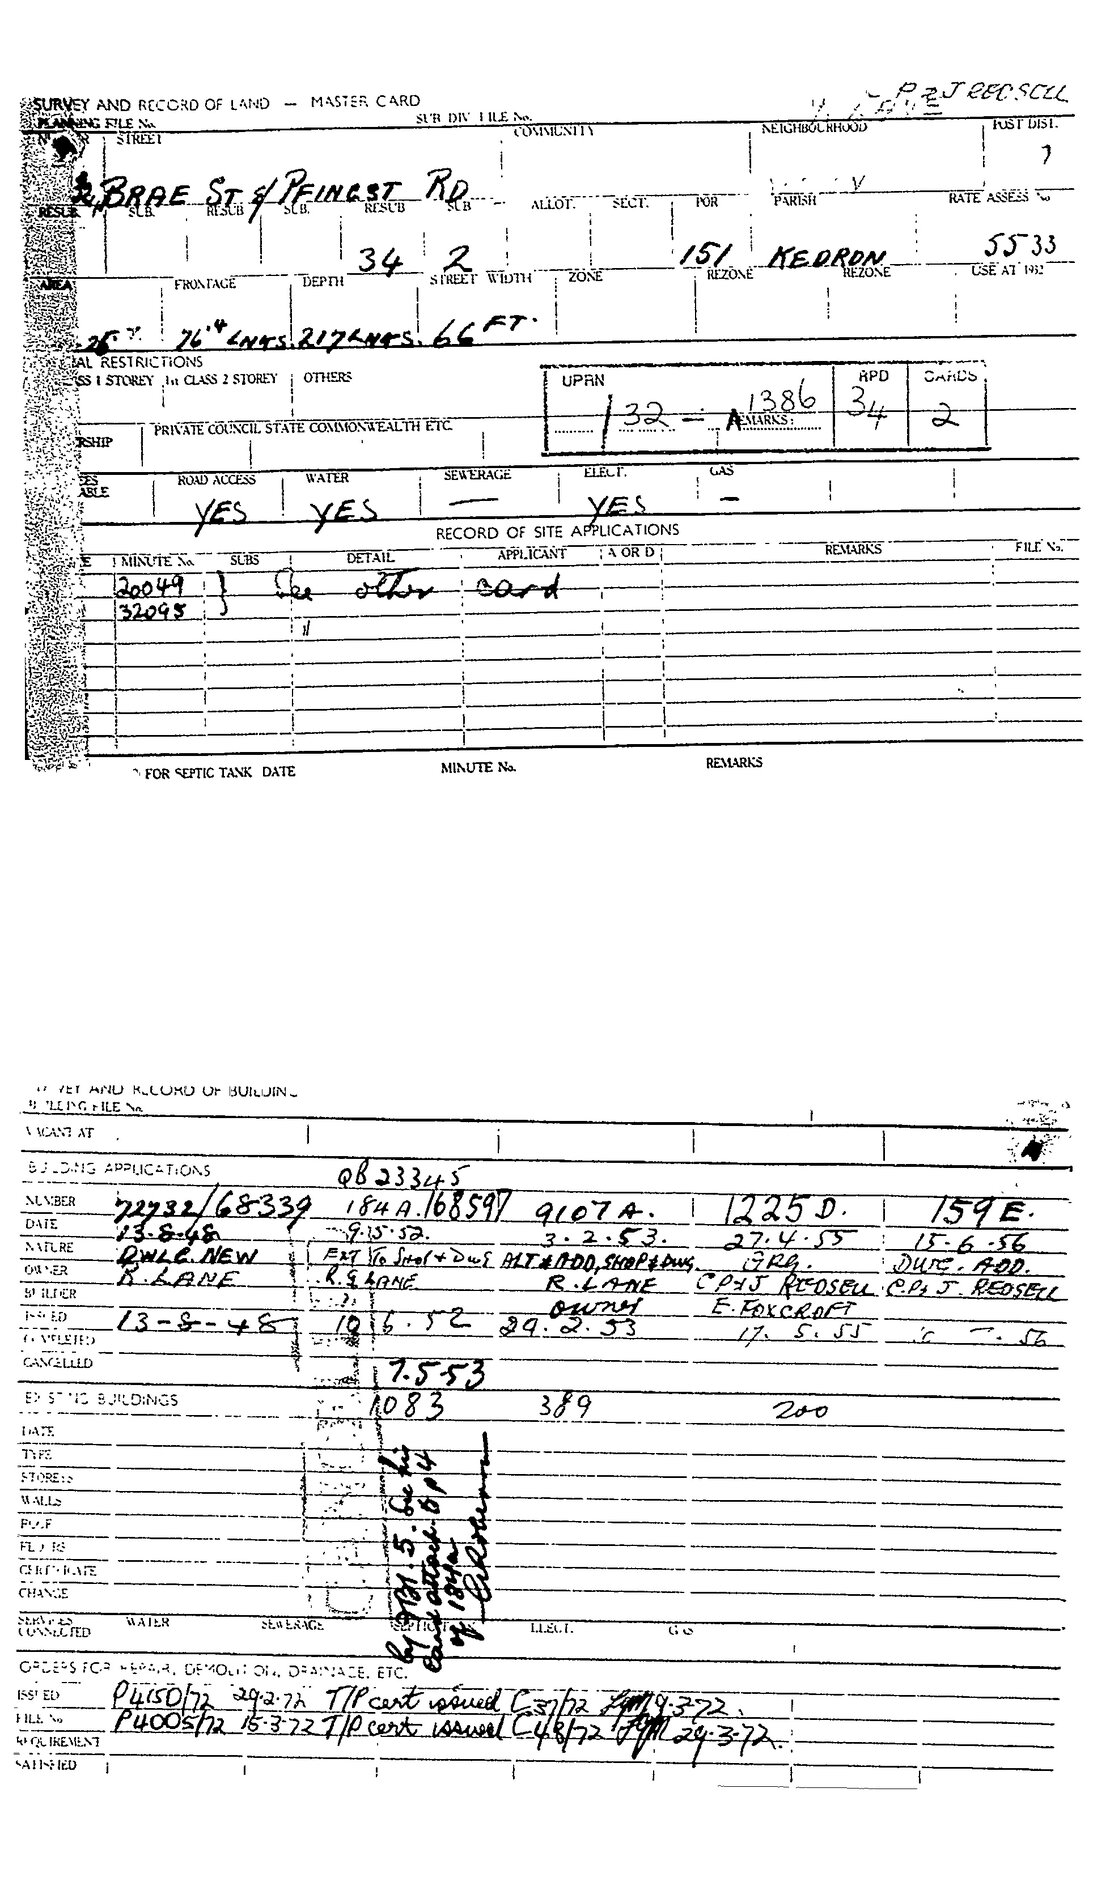 P & J REDSELL
SURVEY AND RECORD OF LAND — MASTER CARD
PLANNING FILE No. SUB DIV FILE No.
STREET COMMUNITY NEIGHBOURHOOD POST DIST.
BRAE ST & PFINGST RD
RESUB. SUB. RESUB SUB. RESUB SUB ALLOT. SECT. POR PARISH RATE ASSESS No
34 2 151 KEDRON 5533
AREA FRONTAGE DEPTH STREET WIDTH ZONE REZONE REZONE USE AT 1932
76.4 LNKS. 217 LNKS. 66 FT.
RESTRICTIONS
1 STOREY 1st CLASS 2 STOREY OTHERS
UPRN RPD CARDS
132 — A 1386 34 2
REMARKS:
PRIVATE COUNCIL STATE COMMONWEALTH ETC.
ROAD ACCESS WATER SEWERAGE ELECT. GAS
YES YES — YES –
RECORD OF SITE APPLICATIONS
MINUTE No. SUBS DETAIL APPLICANT A OR D REMARKS FILE No.
20049 } See other card
32095
"
FOR SEPTIC TANK DATE MINUTE No. REMARKS
VEY AND RECORD OF BUILDIN
FILE No.
VACANT AT
BUILDING APPLICATIONS QB 23345
NUMBER 72732/68339 184A./68597 9107A. 1225D. 159E.
DATE 13-8-48 3.2.53. 27.4.55 15-6-56
NATURE DWLG. NEW EXT To Shop & Dwg ALT & ADD, SHOP & DWG. GRG. DWG. ADD.
OWNER R. LANE R. G LANE R. LANE C P & J REDSELL C.P & J. REDSELL
BUILDER owner E. FOXCROFT
ISSUED 13-8-48 10 6.52 29.2.53 17. 5. 55 56
COMPLETED
CANCELLED 7.5-53
EXISTING BUILDINGS 1083 389 200
DATE
TYPE
STOREYS
WALLS
ROOF
FLOORS
CERTIFICATE
CHANGE
of 184a
SERVICES CONNECTED WATER SEWERAGE SEPTIC ELECT. GAS
ORDERS FOR REPAIR, DEMOLITION, DRAINAGE, ETC.
ISSUED P4150/72 29.2.72 T/P cert issued C37/72 9.3.72.
FILE No P4005/72 15-3-72 T/P cert issued C48/72 29.3.72.
REQUIREMENT
SATISFIED